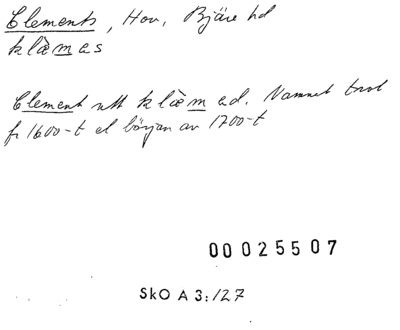 Clements, Hov, Bjäre hd
klæ̀mǝs
Clement utt klæ̀mǝd. Namnet trol
fr 1600-t el början av 1700-t
00025507
SkO A 3:127